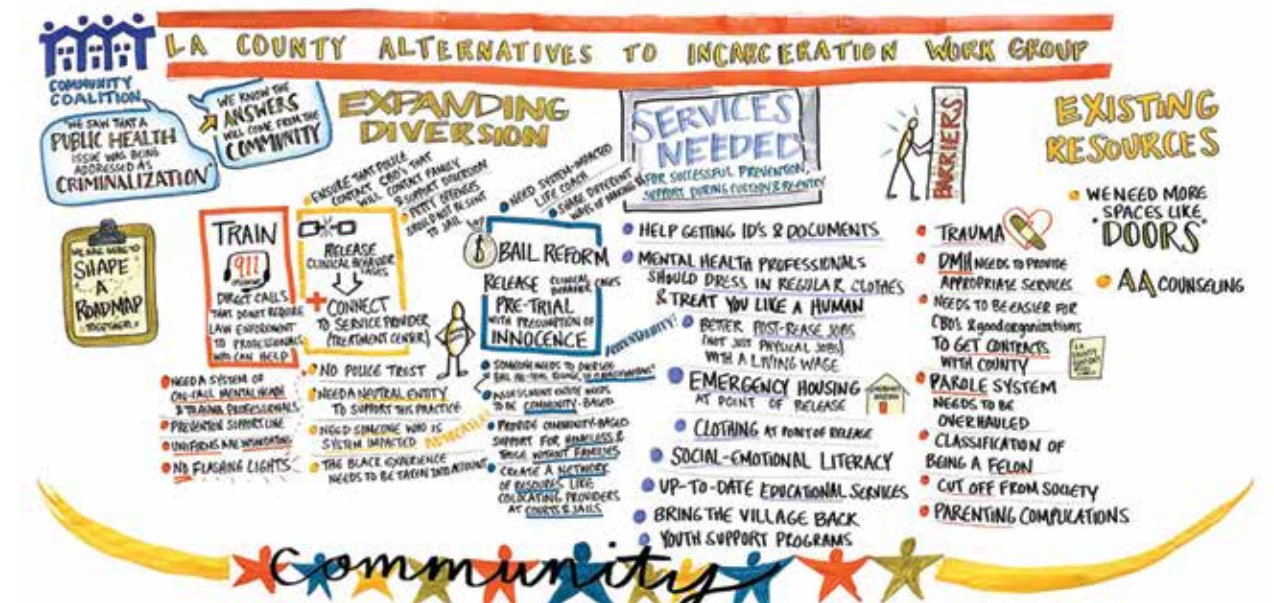 LA COUNTY ALTERNATIVES TO INCARCERATION WORK GROUP
COMMUNITY
COALITION
"WE SAW THAT A
PUBLIC HEALTH
ISSUE WAS BEING
ADDRESSED AS
CRIMINALIZATION"
WE KNOW THE
ANSWERS
WILL COME FROM THE
COMMUNITY
WE ARE HERE TO
SHAPE
A
ROADMAP
TOGETHER!
EXPANDING
DIVERSION
TRAIN
911
DIRECT CALLS
THAT DO NOT REQUIRE
LAW ENFORCEMENT
TO PROFESSIONALS
WHO CAN HELP
NEED A SYSTEM OF
ON-CALL MENTAL HEALTH
& TRAUMA PROFESSIONALS
PREVENTION SUPPORT LINE
UNIFORMS ARE
NO FLASHING LIGHTS
ENSURE THAT POLICE
CONTACT CBO'S THAT
WILL CONTACT FAMILY
& SUPPORT DIVERSION
PETTY OFFENSES
SHOULD NOT BE SENT
TO JAIL
RELEASE
CLINICAL BEHAVIOR
CASES
+ CONNECT
TO SERVICE PROVIDER
(TREATMENT CENTER)
NO POLICE TRUST
NEED A NEUTRAL ENTITY
TO SUPPORT THIS PRACTICE
NEED SOMEONE WHO IS
SYSTEM IMPACTED
THE BLACK EXPERIENCE
NEEDS TO BE TAKEN INTO ACCOUNT
NEED SYSTEM-IMPACTED
LIFE COACH
SHARE DIFFERENT
WAYS OF MAKING $
$ BAIL REFORM
RELEASE CLINICAL BEHAVIOR CASES
PRE-TRIAL
WITH PRESUMPTION OF
INNOCENCE
SOMEONE NEEDS TO OVERSEE
ASSESSMENT ENTITY NEEDS
TO BE COMMUNITY-BASED
PROVIDE COMMUNITY-BASED
SUPPORT FOR HOMELESS &
THOSE WITHOUT FAMILIES
CREATE A NETWORK
OF RESOURES LIKE
COLOCATING PROVIDERS
AT COURTS & JAILS
SERVICES
NEEDED
FOR SUCCESSFUL PREVENTION,
SUPPORT DURING CUSTODY & RE-ENTRY
HELP GETTING ID'S & DOCUMENTS
MENTAL HEALTH PROFESSIONALS
SHOULD DRESS IN REGULAR CLOTHES
& TREAT YOU LIKE A HUMAN
BETTER POST-REASE JOBS
(NOT JUST PHYSICAL JOBS)
WITH A LIVING WAGE
EMERGENCY HOUSING
AT POINT OF RELEASE
CLOTHING AT POINT OF RELEASE
SOCIAL-EMOTIONAL LITERACY
UP-TO-DATE EDUCATIONAL SERVICES
BRING THE VILLAGE BACK
YOUTH SUPPORT PROGRAMS
BARRIERS
TRAUMA
DMH NEEDS TO PROVIDE
APPROPRIATE SERVICES
NEEDS TO BE EASIER FOR
CBO's & good organizations
TO GET CONTRACTS
WITH COUNTY
PAROLE SYSTEM
NEEDS TO BE
OVERHAULED
CLASSIFICATION OF
BEING A FELON
CUT OFF FROM SOCIETY
PARENTING COMPLICATIONS
EXISTING
RESOURCES
WE NEED MORE
SPACES LIKE
"DOORS"
AA COUNSELING
Community